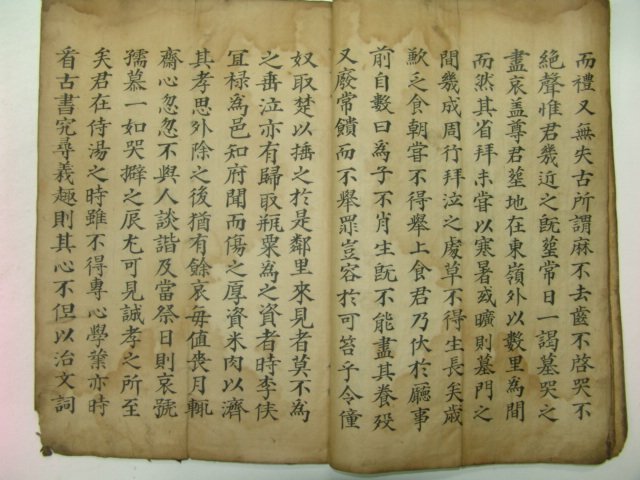 而禮又無失古所謂麻不去齒不啓哭不
絶聲惟君幾近之旣葬常日一謁墓哭之
盡哀盖尊君葬地在東嶺外以數里爲間
而然其省拜未嘗以寒暑或曠則墓門之
間幾成周行拜泣之處草不得生長矣歲
歉乏食朝嘗不得擧上食君乃伏於廳事
前自數曰爲子不肖生旣不能盡其養歿
又廢常饋而不擧罪豈容於可笞乎令僮
奴取楚以捶之於是鄰里來見者莫不爲
之垂泣亦有歸取瓶粟爲之資者時李侯
冝祿爲邑知府聞而傷之厚資米肉以濟
其孝思外除之後猶有餘哀每値喪月輒
齋心忽忽不與人談諧及當祭日則哀號
孺慕一如哭擗之辰尤可見誠孝之所至
矣君在侍湯之時雖不得專心學業亦時
看古書究尋義趣則其心不但以治文詞